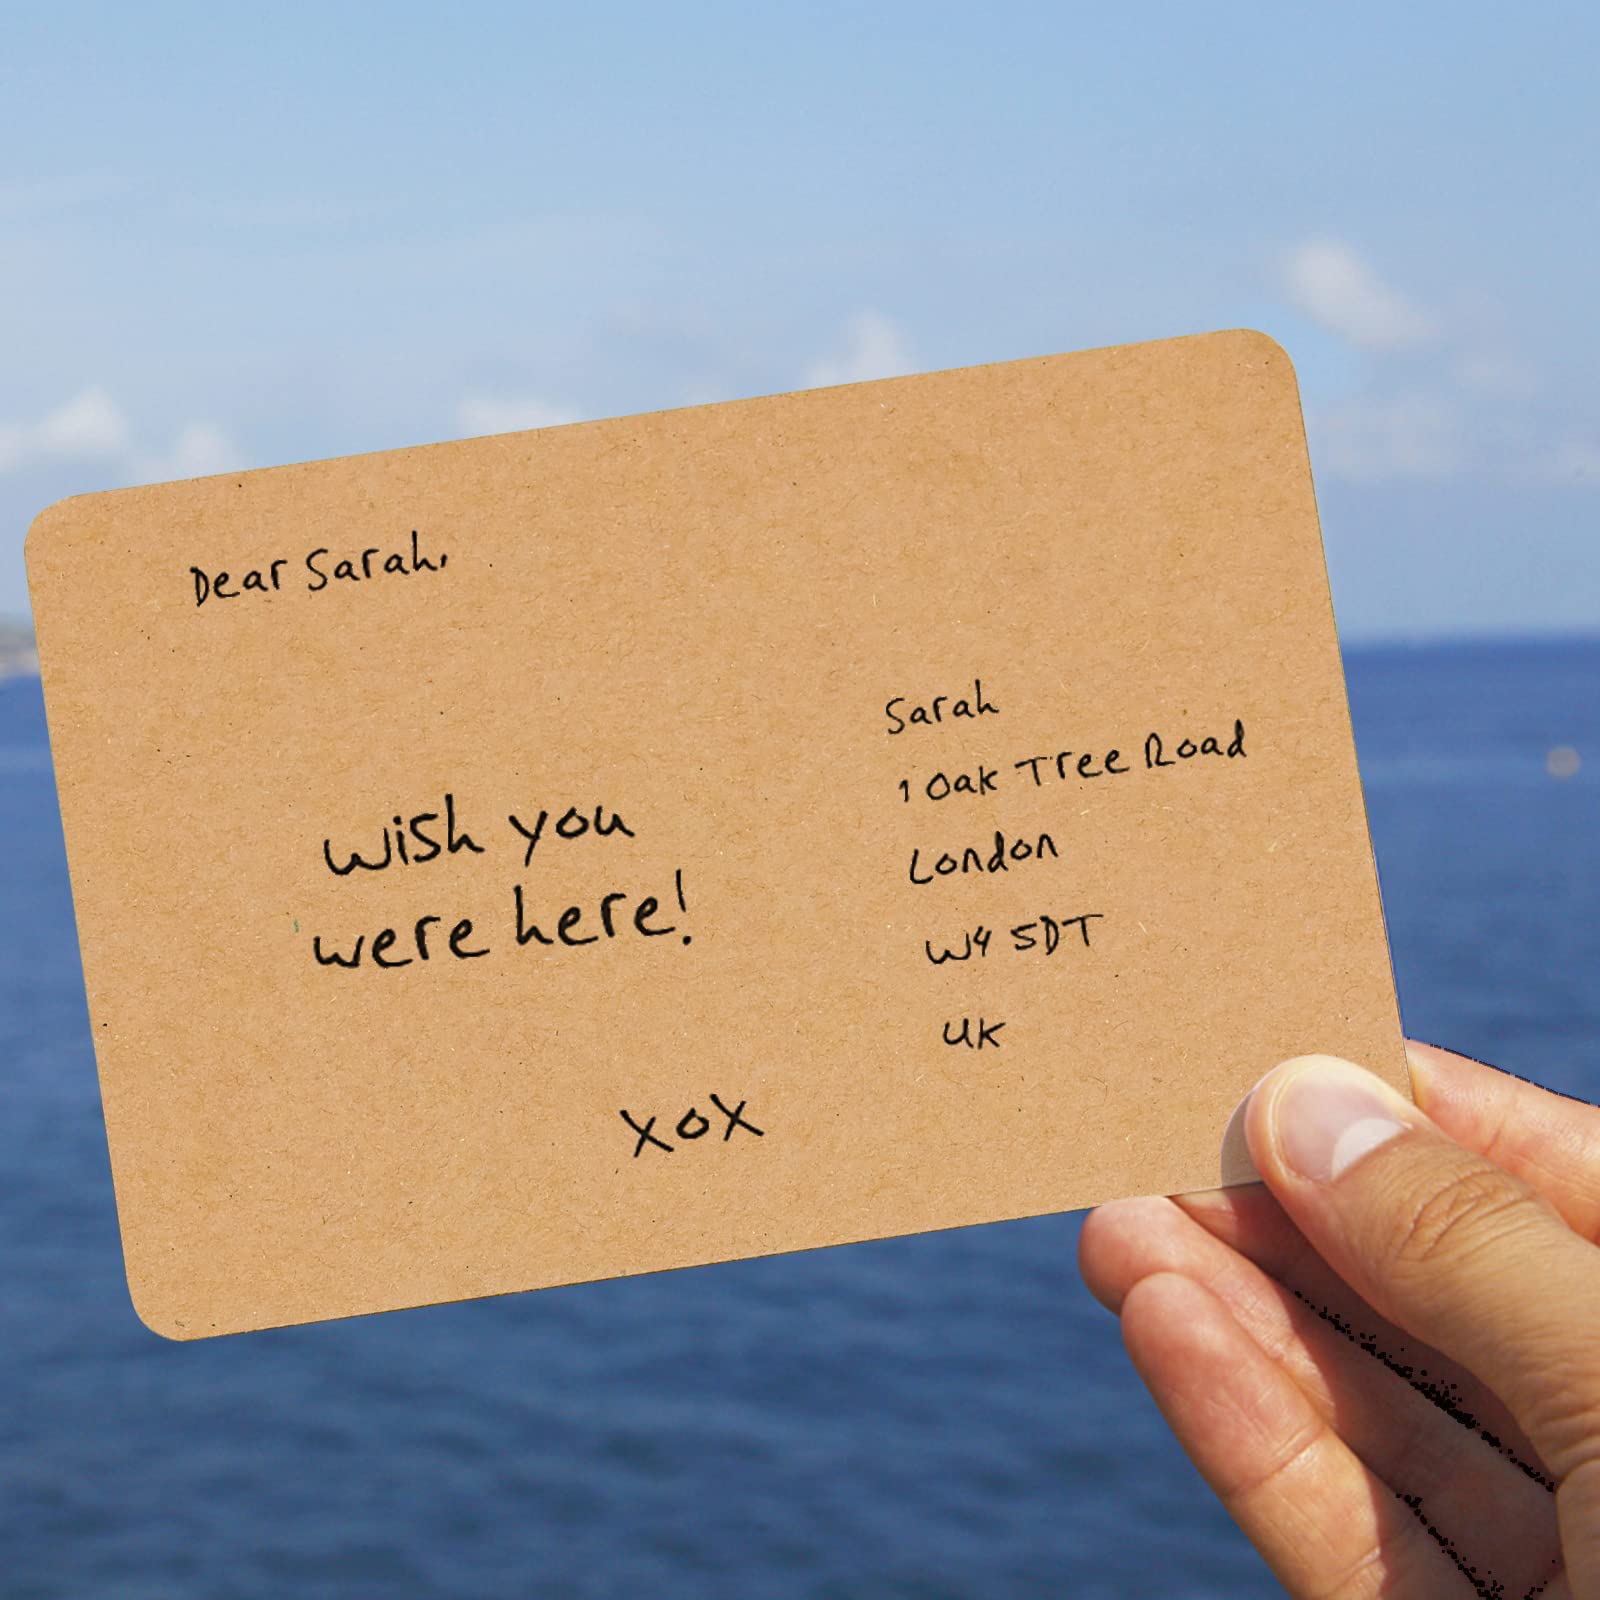 Dear Sarah,
Wish you
were here!
XOX
Sarah
1 Oak Tree Road
London
W4 5DT
UK